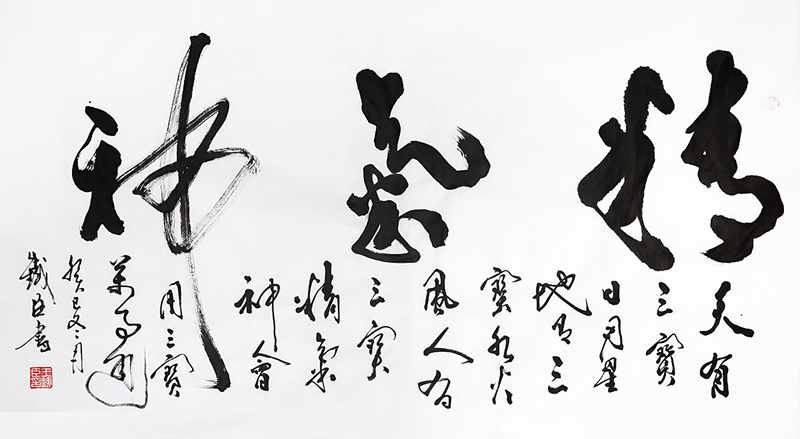 精氣神
天有
三寶
日月星
地有三
寶水火
風人有
三寶
精氣
神人會
用三寶
萬事通
癸巳二月
鐵臣書